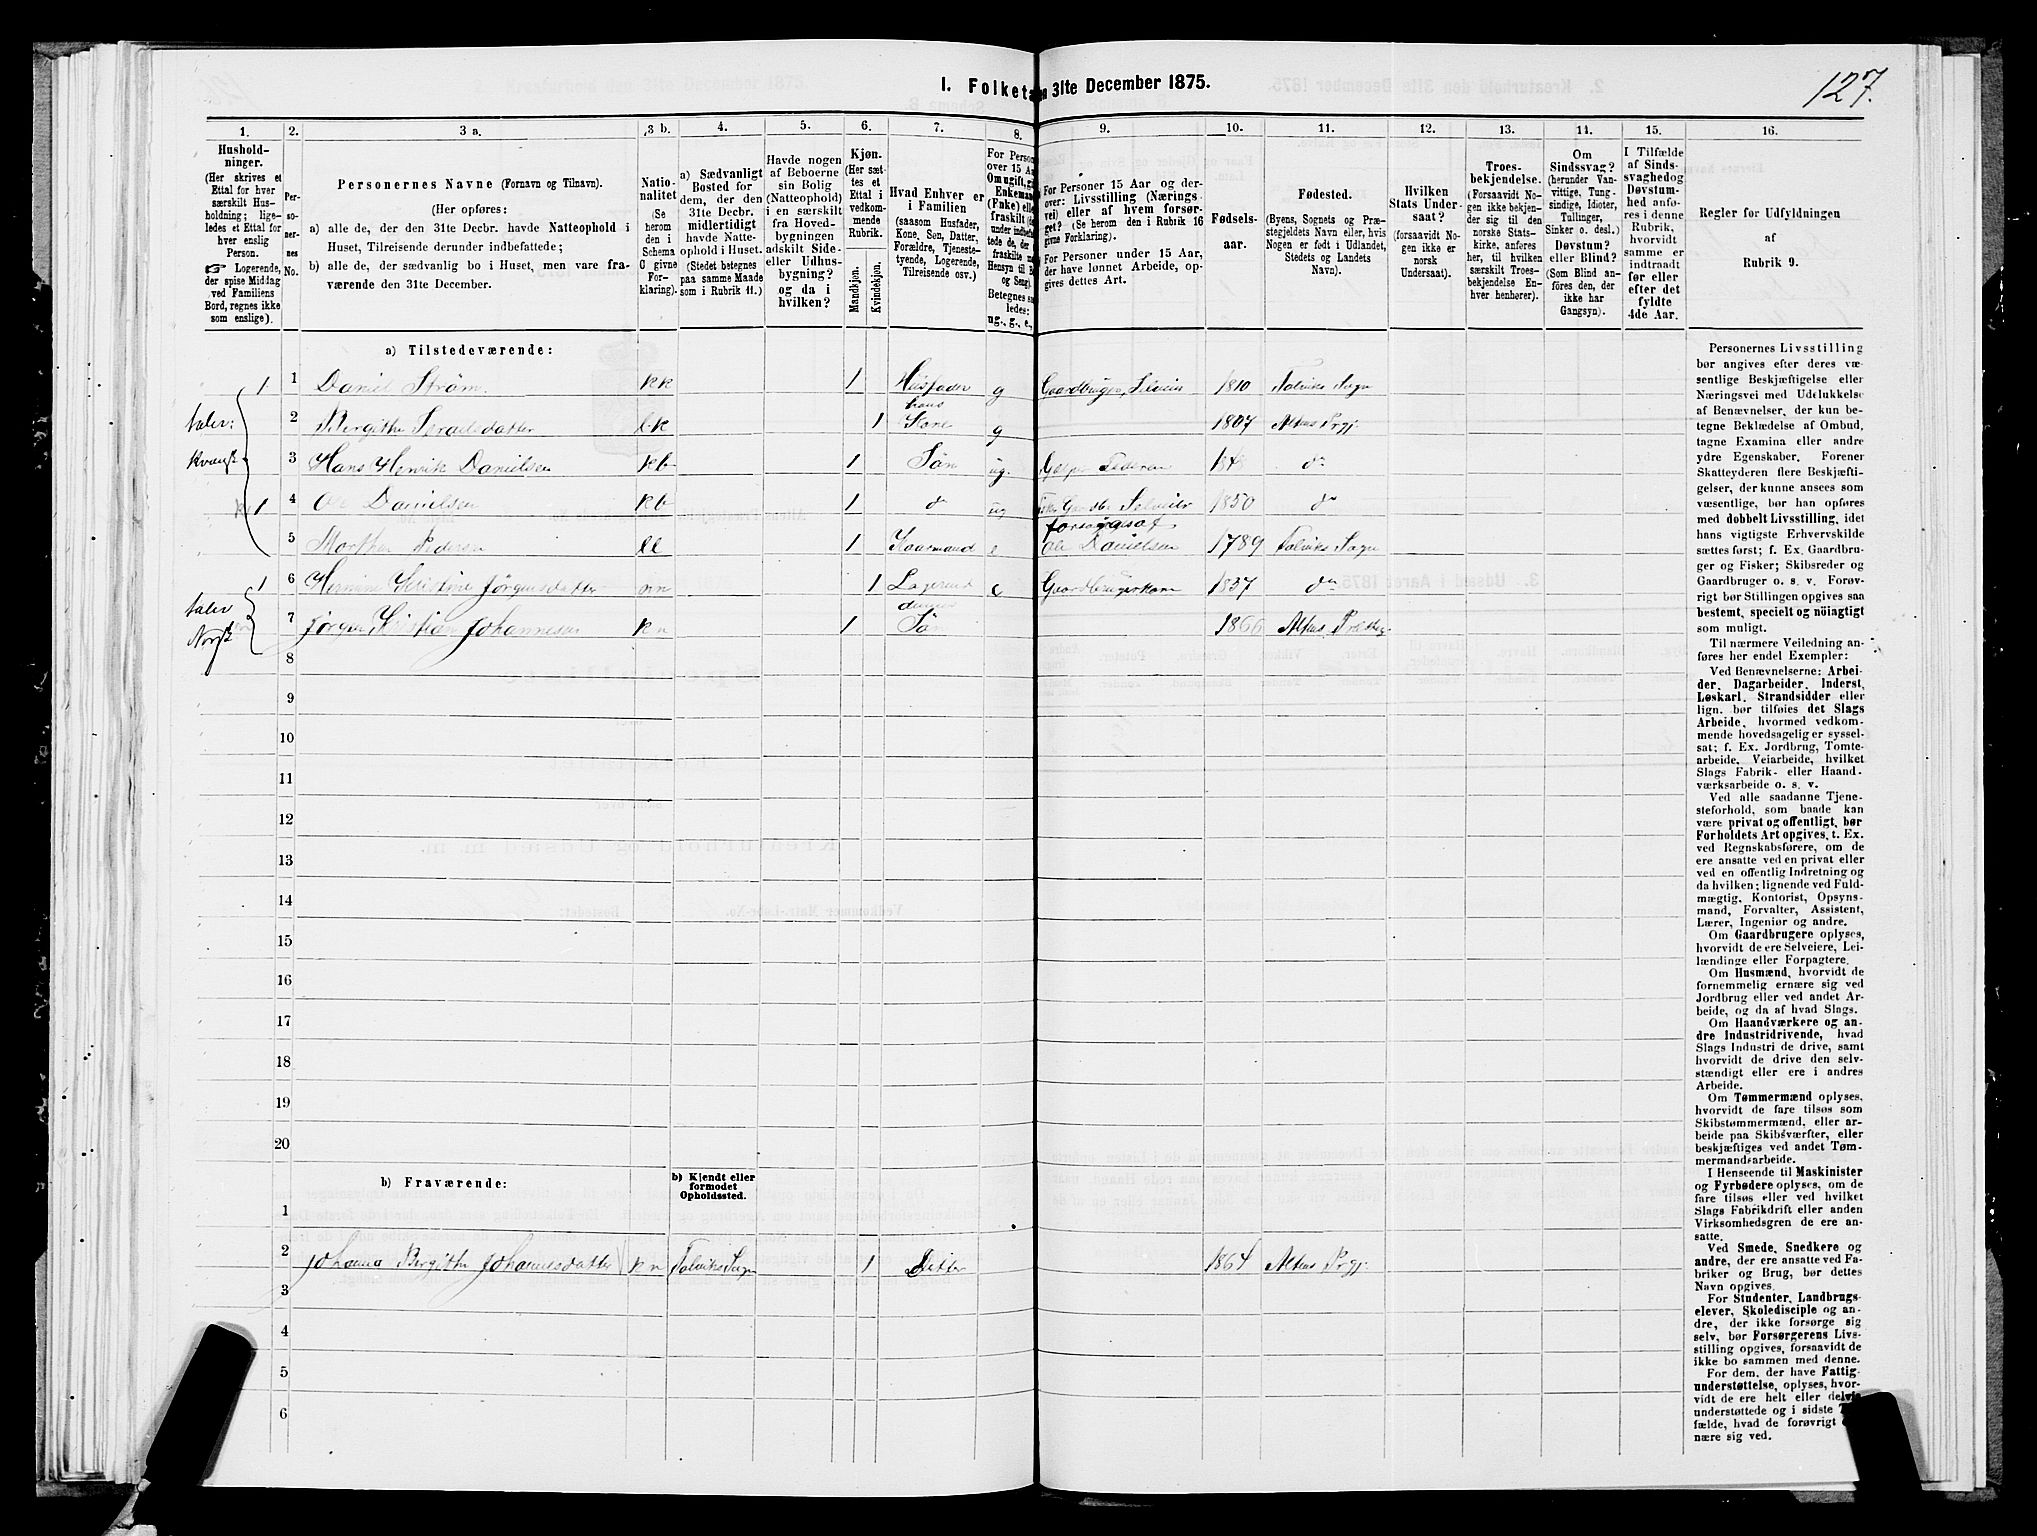 I. Folketæ
n 31te December 1875.
127.
1.
2.
3 a.
3 b.
4.
5.
6.
7.
8.
9.
10.
11.
12.
13.
14.
15.
16.
Hushold-
ninger.
(Her skrives et
Ettal for hver
særskilt Hus-
holdning; lige-
ledes et Ettal for
hver enslig
Person.
☞ Logerende,
der spise Middag
ved Familiens
Bord, regnes ikke
som enslige).
Per-
so-
ner-
nes
No.
Personernes Navne (Fornavn og Tilnavn).
(Her opføres:
a) alle de, der den 31te Decbr. havde Natteophold i
Huset, Tilreisende derunder indbefattede;
b) alle de, der sædvanlig bo i Huset, men vare fra-
værende den 31te December.
Natio-
nalitet
(Se
herom
den i
Schema
C givne
For-
klaring).
a) Sædvanligt
Bosted for
dem, der den
31te Decbr.
midlertidigt
havde Natte-
ophold i Huset.
(Stedet betegnes
paa samme Maade
som i Rubrik 11.)
Havde nogen
af Beboerne
sin Bolig
(Natteophold)
i en særskilt
fra Hoved-
bygningen
adskilt Side-
eller Udhus-
bygning?
og da i
hvilken?
Kjøn.
(Her sæt-
tes et
Ettal i
vedkom-
mende
Rubrik.
Mandkjøn.
Kvindekjøn.
Hvad Enhver er
i Familien
(saasom Husfader,
Kone, Søn, Datter,
Forældre, Tjeneste-
tyende, Logerende,
Tilreisende osv.)
For Person
over 15 Aa
Om ugift, gi
Enkeman
(Enke) elle
fraskilt (d
under indbefa
tede de, de
fraskilte m
Hensyn til B
og Seng).
Betegnes sa
ledes:
ug., g., e.,
For Personer 15 Aar og der-
over: Livsstilling (Nærings-
vei) eller af hvem forsør-
get? (Se herom den i Rubrik 16
givne Forklaring).
For Personer under 15 Aar,
der have lønnet Arbeide, op-
gives dettes Art.
Fødsels-
aar.
Fødested.
(Byens, Sognets og Præ-
stegjeldets Navn eller, hvis
Nogen er født i Udlandet,
Stedets og Landets
Navn).
Hvilken
Stats Under-
saat?
(forsaavidt No-
gen ikke er
norsk
Undersaat).
Troes-
bekjendelse.
(Forsaavidt No-
gen ikke bekjen-
der sig til den
norske Stats-
kirke, anføres
her, til hvilken
særskilt Troes-
bekjendelse En-
hver henhører).
Om
Sindssvag?
(herunder Van-
vittige, Tung-
sindige, Idioter,
Tullinger,
Sinker o. desl.)
Døvstum?
eller Blind?
(Som Blind an-
føres den, der
ikke har
Gangsyn).
I Tilfælde
af Sinds-
svaghed og
Døvstum-
hed anfø-
res i denne
Rubrik,
hvorvidt
samme er
indtraadt
før eller
efter det
fyldte
4de Aar.
Regler for Udfyldningen
af
Rubrik 9.
a) Tilstedeværende:
taler:
Kvænsk
1 1 Daniel Strøm kk 1 Husfader g Gaardbruger, Selveier 1810 Talviks Sogn
2 Bergithe Israelsdatter lk 1 hans Kone g 1807 Altens Prgj.
3 Hans Henrik Danielsen kb 1 Søn ug. do
1 4 Ole Danielsen kb 1 do ug Selveier 1850 do
5 Morthen Pedersen ll 1 Kaarmand e forsørges af Ole Danielsen 1789 Talviks Sogn
taler
Norsk
1 6 Kristine Jørgensdatter nn 1 Logerende e Gaardbrugerkone 1837 do
7 Jørgen Kristian Johannesen kn 1 Søn 1866 Altens
8
9
10
11
12
13
14
15
16
17
18
19
20
b) Fraværende:
b) Kjendt eller
formodet
Opholdssted.
1
2 Johanna Bergithe Johannesdatter kn Talviks Sogn 1 Datter 1864 Altens Prgj.
3
4
5
6
Personernes Livsstilling
bør angives efter deres væ-
sentlige Beskjæftigelse eller
Næringsvei med Udelukkelse
af Benævnelser, der kun be-
tegne Beklædelse af Ombud,
tagne Examina eller andre
ydre Egenskaber. Forener
Skatteyderen flere Beskjæfti-
gelser, der kunne ansees som
væsentlige, bør han opføres
med dobbelt Livsstilling, idet
hans vigtigste Erhvervskilde
sættes først; f. Ex. Gaardbru-
ger og Fisker; Skibsreder og
Gaardbruger o. s. v. Forøv-
rigt bør Stillingen opgives saa
bestemt, specielt og nöiagtigt
som muligt.
Til nærmere Veiledning an-
føres her endel Exempler:
Ved Benævnelserne: Arbei-
der, Dagarbeider, Inderst,
Løskarl, Strandsidder eller
lign. bør tilføies det Slags
Arbeide, hvormed vedkom-
mende hovedsagelig er syssel-
sat; f. Ex. Jordbrug, Tomte-
arbeide, Veiarbeide, hvilket
Slags Fabrik- eller Haand-
værksarbeide o. s. v.
Ved alle saadanne Tjene-
steforhold, som baade kan
være privat og offentligt, bør
Forholdets Art opgives, t. Ex.
ved Regnskabsførere, om de
ere ansatte ved en privat eller
ved en offentlig Indretning og
da hvilken; lignende ved Fuld-
mægtig, Kontorist, Opsyns-
mand, Forvalter, Assistent,
Lærer, Ingeniør og andre.
Om Gaardbrugere oplyses,
hvorvidt de ere Selveiere, Lei-
lændinge eller Forpagtere.
Om Husmænd, hvorvidt de
fornemmelig ernære sig ved
Jordbrug eller ved andet Ar-
beide, og da af hvad Slags.
Om Haandværkere og an-
dre Industridrivende, hvad
Slags Industri de drive, samt
hvorvidt de drive den selv-
stændigt eller ere i andres
Arbeide.
Om Tømmermænd oplyses,
hvorvidt de fare tilsøs som
Skibstømmermænd, eller ar-
beide paa Skibsværfter, eller
beskjæftiges ved andet Tøm-
mermandsarbeide.
I Henseende til Maskinister
og Fyrbødere oplyses, om de
fare tilsøs eller ved hvilket
Slags Fabrikdrift eller anden
Virksomhedsgren de ere an-
satte.
Ved Smede, Snedkere og
andre, der ere ansatte ved Fa-
briker og Brug, bør dettes
Navn opgives.
For Studenter, Landbrugs-
elever, Skoledisciple og an-
dre, der ikke forsørge sig
selv, bør Forsørgerens Livs-
stilling opgives, forsaavidt de
ikke bo sammen med denne.
For dem, der have Fattig-
understøttelse, oplyses, hvor-
vidt de ere helt eller delvis
understøttede og i sidste
fælde, hvad de forøvrigt
nære sig ved.